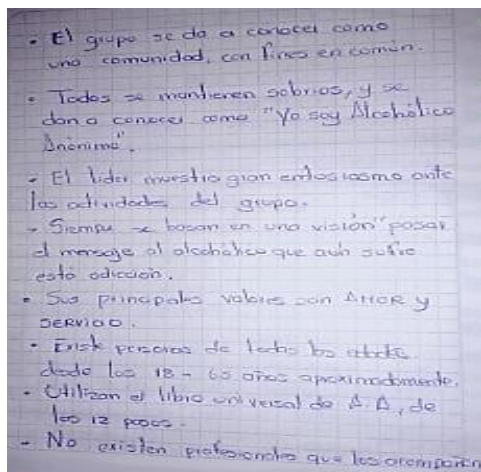 • El grupo se da a conocer como
una comunidad, con fines en común.
• Todos se mantienen sobrios, y se
dan a conocer como "Yo soy Alcohólico
Anónimo".
• El lider muestra gran entusiasmo ante
las actividades del grupo.
• Siempre se basan en una visión "pasar
el mensaje al alcohólico que aún sufre
esta adicción.
• Sus principales valores son AMOR y
SERVICIO.
• Existe personas de todas las
desde los 18 - 65 años aproximadamente.
• Utilizan el libro universal de A.A, de
los 12 pasos.
- No existen profesionales que los acompañen